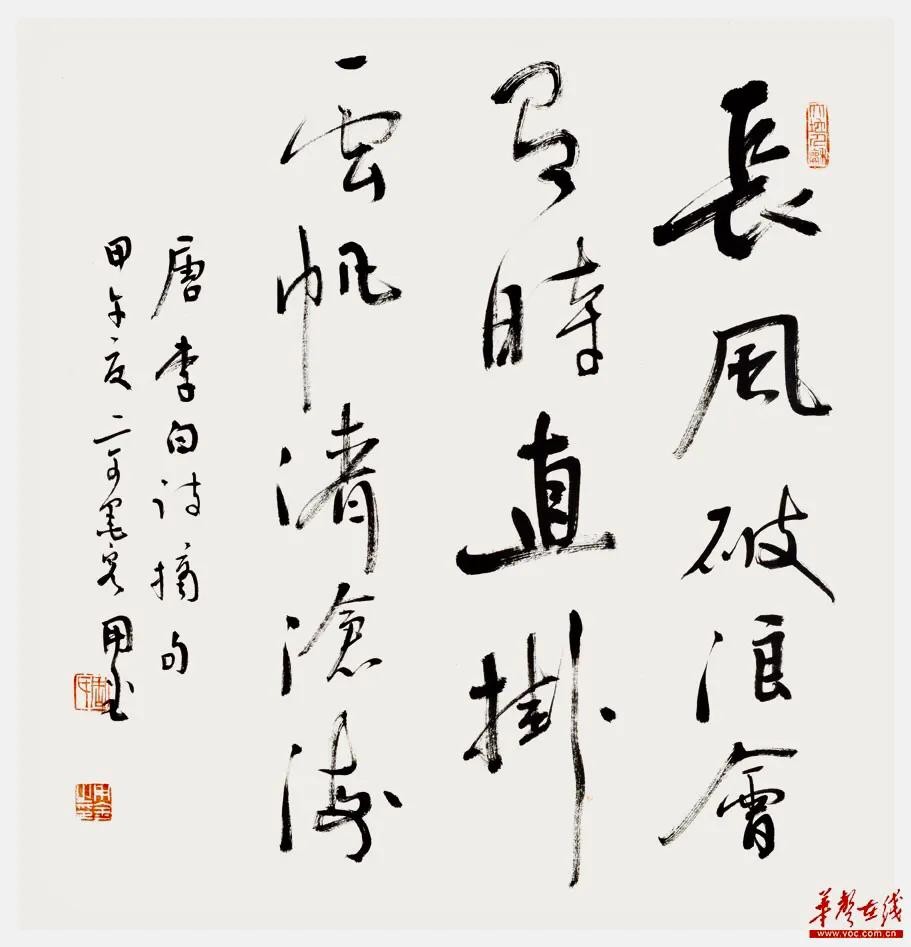 長風破浪會
有時直掛
雲帆濟滄海
唐李白诗摘句
甲午夏
華聲在线
www.voc.com.cn